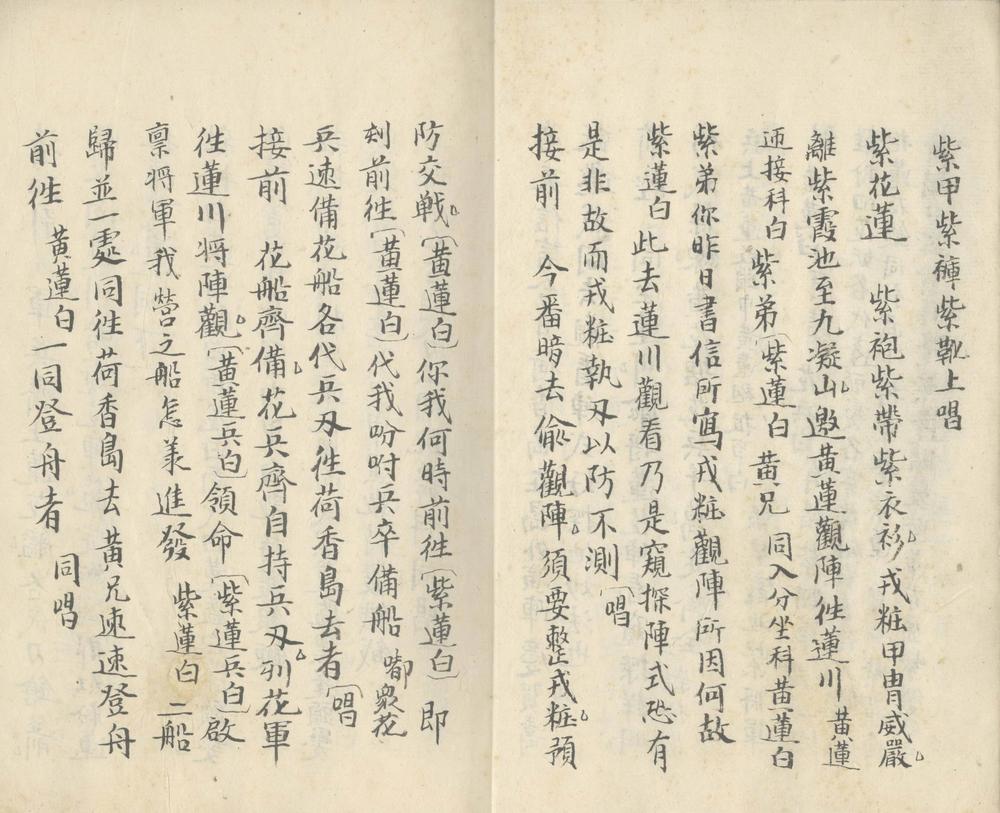 紫甲紫褲紫靴上唱
紫花蓮　紫袍紫帶紫衣衫戎粧甲冑威嚴
離紫霞池至九凝山邀黃蓮觀陣徃蓮川　黃蓮
迊接科白　紫弟〔紫蓮白　黃兄　同入分坐科黃蓮白
紫弟你昨日書信所寫戎粧觀陣所因何故
紫蓮白　此去蓮川觀看乃是窺探陣式恐有
是非故而戎粧執刃以防不測〔唱
接前　今番暗去偷觀陣須要整戎粧預
防交戰〔黃蓮白〕你我何時前徃〔紫蓮白〕即
刻前徃〔黃蓮白〕代我吩咐兵卒備船　嘟衆花
兵速備花船各代兵刃徃荷香島去者〔唱
接前　花船齊備花兵齊自持兵刃列花軍
徃蓮川將陣觀〔黃蓮兵白〕領命〔紫蓮兵白〕啟
禀將軍我營之船怎羕進發　紫蓮白　二船
歸並一處同徃荷香島去黃兄速速登舟
前徃　黃蓮白一同登舟者　同唱